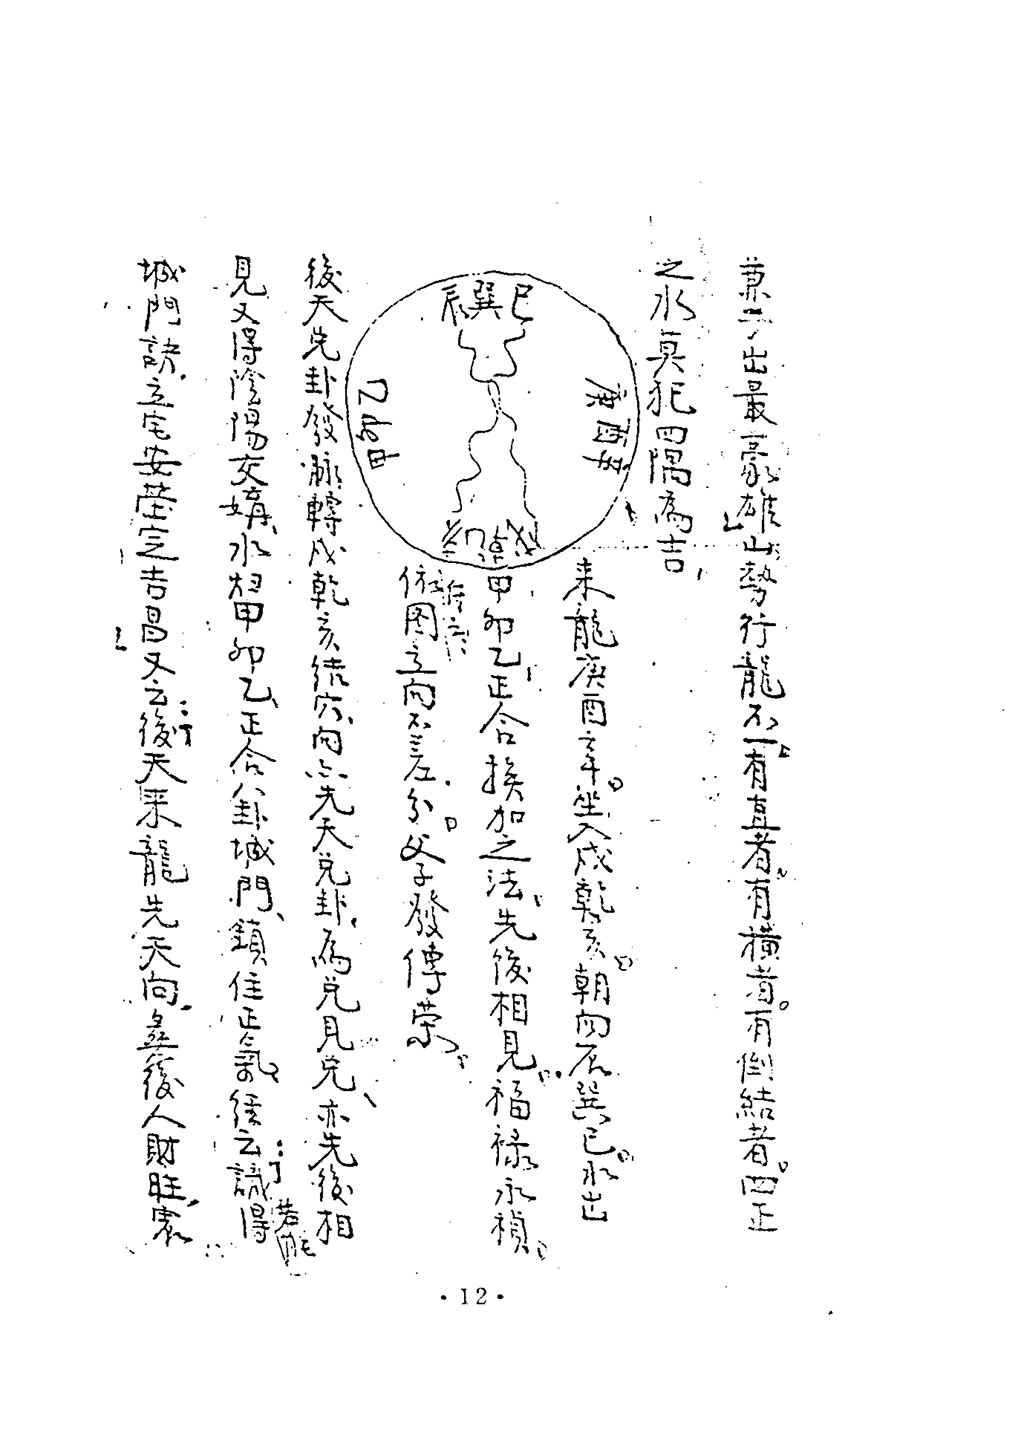 出最豪雄山勢行龍不一有直者有橫者有倒結者四正
之水真犯四隅為吉
巳巽辰
庚酉辛
甲卯乙
来龍庚酉辛坐入戌乾亥朝向辰巽巳水出
甲卯乙正合挨加之法先後相見福禄永禎
依图立向不差分父子發傳荣
後天兑卦發脉轉戌乾亥结穴向亦先天兑卦為兑見兑亦先後相
見又得陰陽交媾水甲卯乙正合八卦城門鎖住正氣經云識得
若能
城門訣立宅安塋定吉昌又云後天来龍先天向後人財旺
· 12 ·